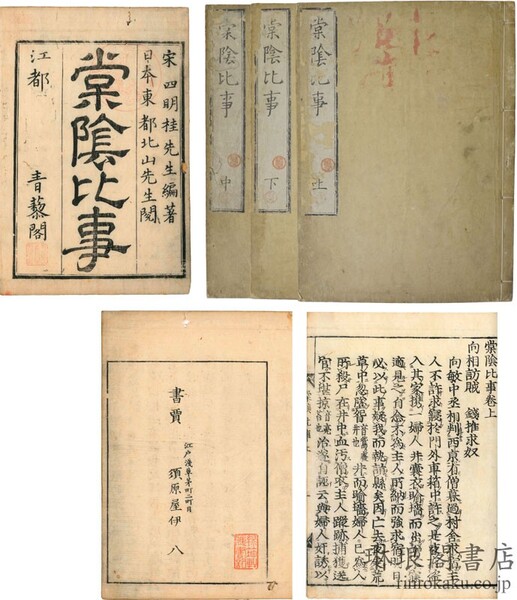 宋 四明桂先生編著
日本東都北山先生閲
棠陰比事
江都 青藜閣
棠陰比事 上
棠陰比事 下
棠陰比事 中
書賈
江戸淺草茅町二町目
須原屋伊八
棠陰比事卷上
向相訪賊 錢推求奴
向敏中丞相判西京有僧暮過村舍求宿主
人不許求寢於門外車箱中許之是夜有盗
入其家携一婦人并囊衣踰墻而出僧
適見之自念不為主人所納而強求宿明日
必以此事疑我而執詣縣矣因亡去夜走荒
草中忽墜眢井而踰墻婦人已為人
所殺尸在井中血污僧衣主人蹤跡捕獲送
官不堪掠治遂自誣云與婦人姦誘以
琳琅閣書店
rinrokaku.co.jp